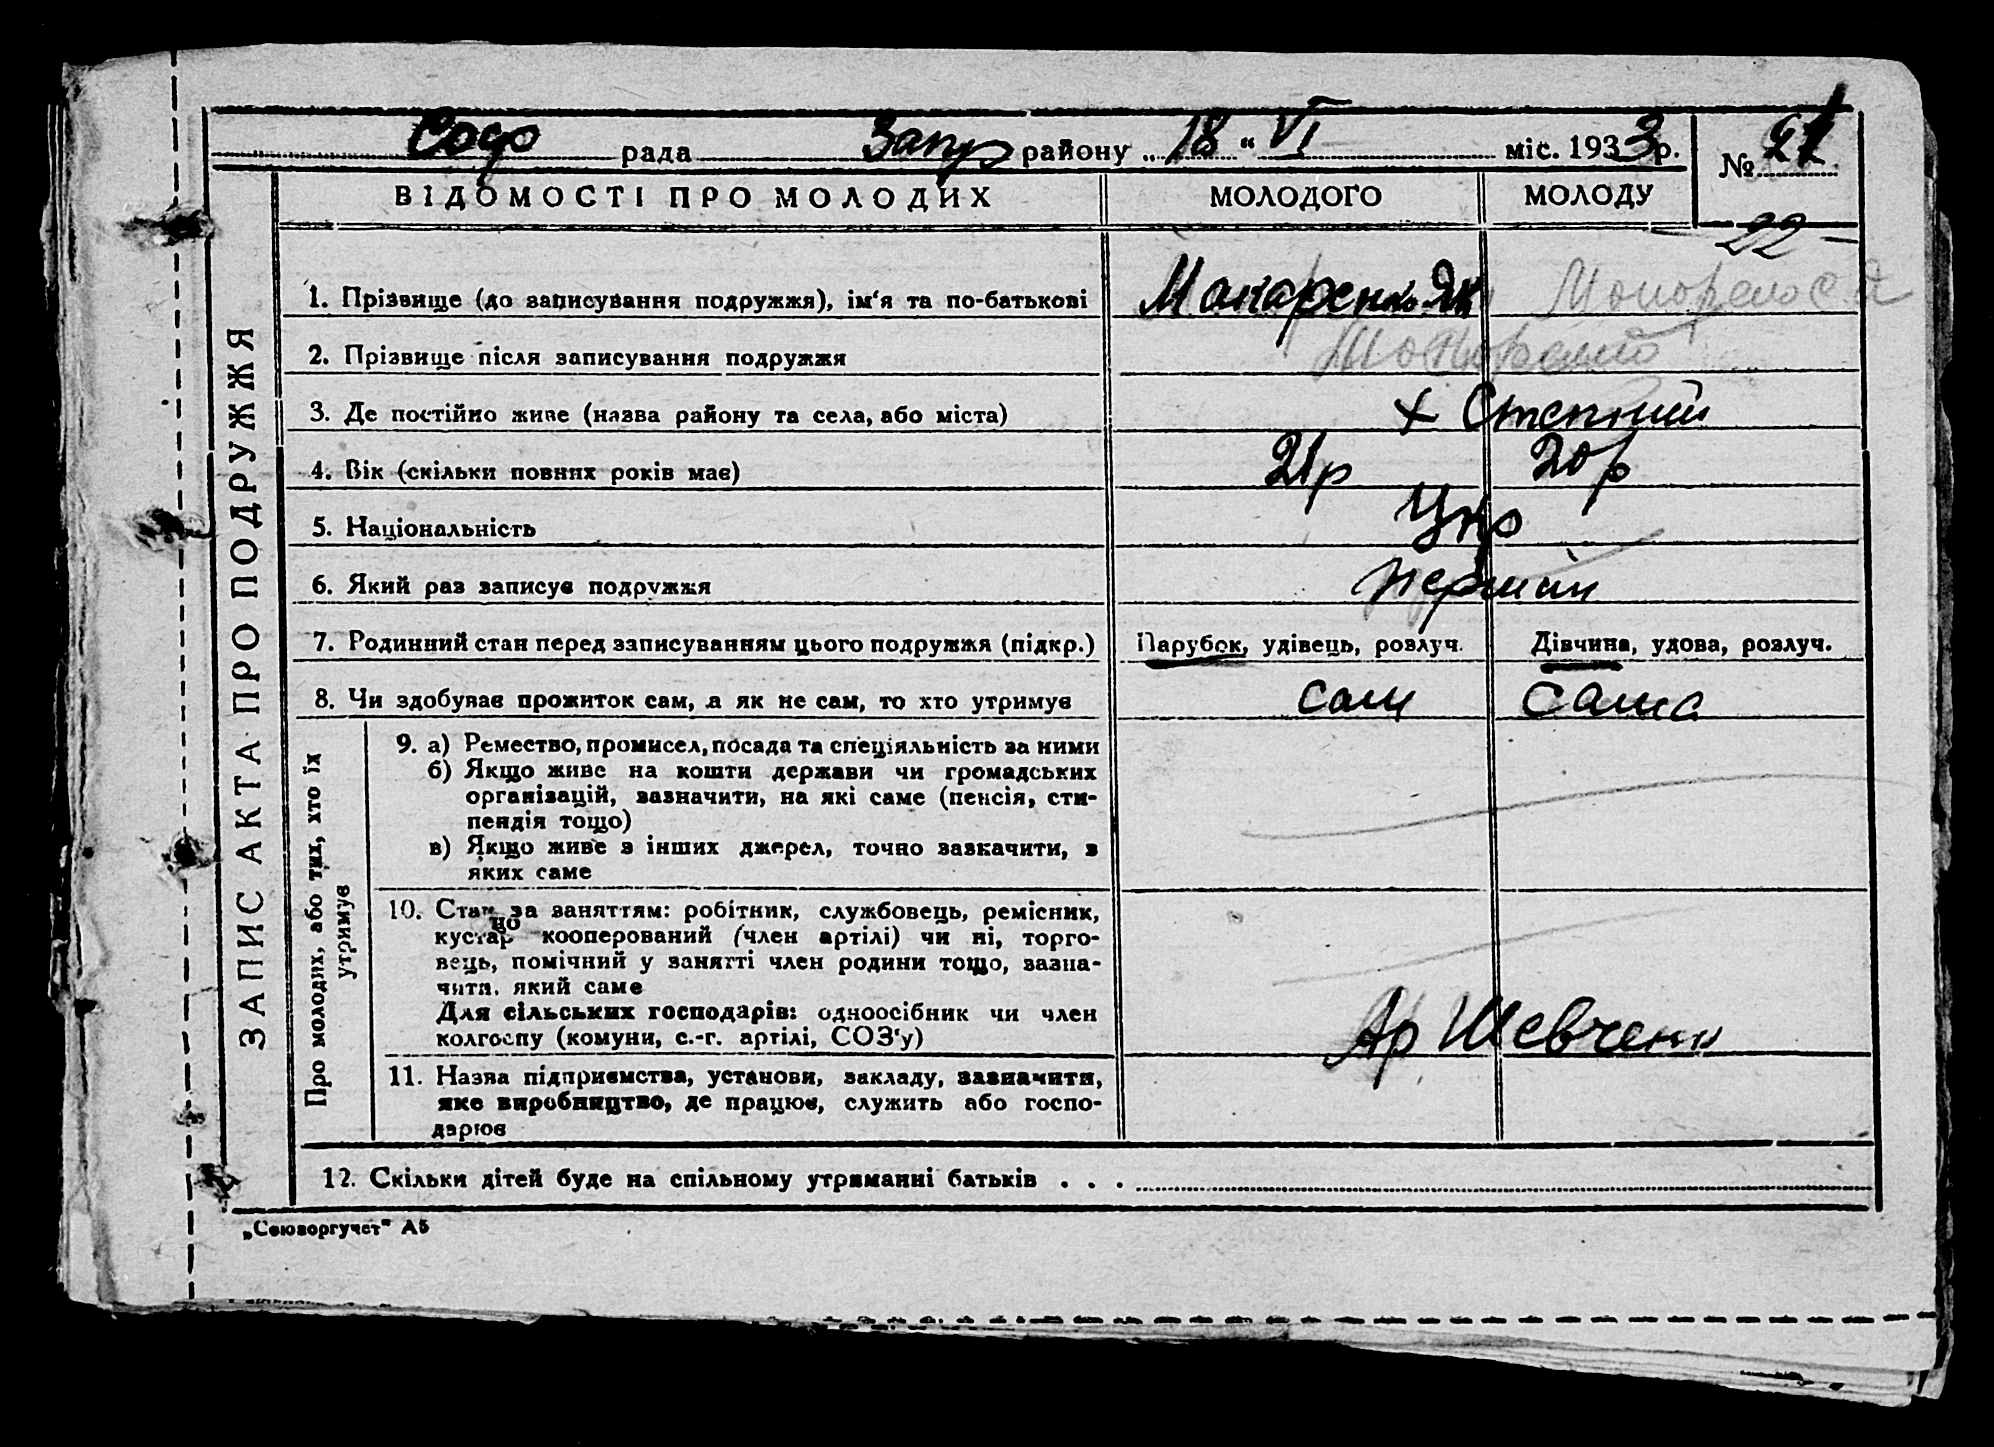 Соф рада Запр району „ 18 “ VI міс. 1933 р. №
ВІДОМОСТІ ПРО МОЛОДИХ МОЛОДОГО МОЛОДУ
22
ЗАПИС АКТА ПРО ПОДРУЖЖЯ
1. Прізвище (до записування подружжя), ім‘я та по-батькові Макаренко Як
2. Прізвище після записування подружжя
3. Де постійно живе (назва району та села, або міста) х Степний
4. Вік (скільки повних років має) 21р 20р
5. Національність Укр
6. Який раз записує подружжя перший
7. Родинний стан перед записуванням цього подружжя (підкр.) Парубок, удівець, розлуч. Дівчина, удова, розлуч.
8. Чи здобуває прожиток сам, а як не сам, то хто утримує сам сама
Про молодих, або тих, хто їх
утримує
9. а) Ремество, промисел, посада та спеціяльність за ними
б) Якщо живе на кошти держави чи громадських
організацій, зазначити, на які саме (пенсія, сти-
пендія тощо)
в) Якщо живе з інших джерел, точно зазначити, з
яких саме
10. Стан за заняттям: робітник, службовець, ремісник,
кустар кооперований (член артілі) чи ні, торго-
вець, помічний у занятті член родини тощо, зазна-
чити, який саме
Для сільських господарів: одноосібник чи член
колгоспу (комуни, с.-г. артілі, СОЗ‘у) Ар Шевченк
11. Назва підприємства, установи, закладу, зазначити,
яке виробництво, де працює, служить або госпо-
дарює
12. Скільки дітей буде на спільному утриманні батьків . . .
„Союзоргучет“ А5